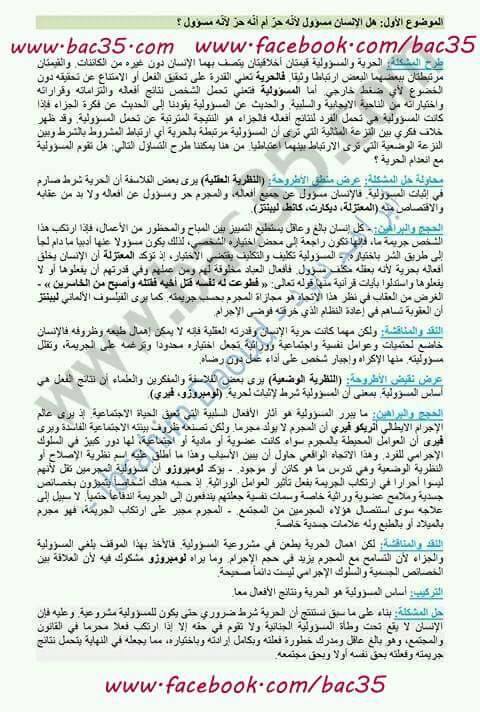 الموضوع الأول: هل الإنسان مسؤول لأنه حرّ أم أنّه حرّ لأنّه مسؤول ؟
www.bac35.com www.facebook.com/bac35
طرح المشكلة: الحرية والمسؤولية قيمتان أخلاقيتان يتصف بهما الإنسان دون غيره من الكائنات. والقيمتان
مرتبطتان ببعضهما البعض ارتباطا وثيقا. فالحرية تعني القدرة على تحقيق الفعل أو الامتناع عن تحقيقه دون
الخضوع لأي ضغط خارجي. أما المسؤولية فتعني تحمل الشخص نتائج أفعاله والتزاماته وقراراته
واختياراته من الناحية الايجابية والسلبية. والحديث عن المسؤولية يقودنا إلى الحديث عن فكرة الجزاء فإذا
كانت المسؤولية هي تحمل الفرد لنتائج أفعاله فالجزاء هو النتيجة المترتبة عن تحمل المسؤولية. وقد ظهر
خلاف فكري بين النزعة المثالية التي ترى أن المسؤولية مرتبطة بالحرية أي ارتباط المشروط بالشرط وبين
النزعة الوضعية التي ترى الارتباط بينهما اعتباطيا. من هنا يمكننا طرح التساؤل التالي: هل تقوم المسؤولية
مع انعدام الحرية ؟
محاولة حل المشكلة: عرض منطق الأطروحة: (النظرية العقلية) يرى بعض الفلاسفة أن الحرية شرط صارم
في إثبات المسؤولية. فالإنسان مسؤول عن جميع أفعاله، والمجرم حر ومسؤول عن أفعاله ولا بد من عقابه
والاقتصاص منه (المعتزلة، ديكارت، كانط، ليبنتز)
الحجج والبراهين: - كل إنسان بالغ وعاقل يستطيع التمييز بين المباح والمحظور من الأعمال، فإذا ارتكب هذا
الشخص جريمة ما، فإنها تكون راجعة إلى محض اختياره الشخصي، لذلك يكون مسؤولا عنها أدبيا ما دام لجأ
إلى طريق الشر باختياره. المسؤولية تكليف والتكليف يقتضي الاختيار، إذ تؤكد المعتزلة أن الإنسان يخلق
أفعاله بحرية لأنه بعقله مكلف مسؤول. فأفعال العباد مخلوقة لهم ومن عملهم وفي قدرتهم أن يفعلوها أو لا
يفعلوها واستدلوا بآيات قرآنية منها قوله تعالى: « فطوعت له نفسه قتل أخيه فقتله وأصبح من الخاسرين » -
الغرض من العقاب في نظر هذا الاتجاه هو مجازاة المجرم بحسب جريمته. كما يرى الفيلسوف الألماني ليبنتز
أن العقوبة تساهم في إعادة النظام الذي خرقته فوضى الإجرام.
النقد والمناقشة: ولكن مهما كانت حرية الإنسان وقدرته العقلية فإنه لا يمكن إهمال طبعه وظروفه فالإنسان
خاضع لحتميات وعوامل نفسية واجتماعية ووراثية تجعل اختياره محدودا وترغمه على الجريمة، وتقلل
مسؤوليته. منها الإكراه وإجبار شخص على أداء عمل دون رضاه.
عرض نقيض الأطروحة: (النظرية الوضعية) يرى بعض الفلاسفة والمفكرين والعلماء أن نتائج الفعل هي
أساس المسؤولية. بمعنى أن المسؤولية شرط لإثبات لحرية. (لومبروزو، فيري)
الحجج والبراهين: ما يبرر المسؤولية هو آثار الأفعال السلبية التي تعيق الحياة الاجتماعية. إذ يرى عالم
الإجرام الايطالي أنريكو فيري أن المجرم لا يولد مجرما. ولكن تصنعه ظروف بيئته الاجتماعية الفاسدة ويرى
فيري أن العوامل المحيطة بالمجرم سواء كانت عضوية أو مادية أو اجتماعية، لها دور كبير في السلوك
الإجرامي للفرد. وهذا الاتجاه الواقعي حاول أن يبين الأسباب وهذا ما أطلق عليه اسم نظرية الإصلاح أو
النظرية الوضعية وهي تدرس ما هو كائن أو موجود. - يؤكد لومبروزو أن مسؤولية المجرمين تقل لأنهم
ليسوا أحرارا في ارتكاب الجريمة بفعل تأثير العوامل الوراثية. إذ حسبه هناك أشخاص يتميزون بخصائص
جسدية وملامح عضوية وراثية خاصة وسمات نفسية جعلتهم يندفعون إلى الجريمة اندفاعا حتمياً. لا سبيل إلى
علاجه سوى استئصال هؤلاء المجرمين من المجتمع. - المجرم مجبر على ارتكاب الجريمة، فهو مجرم
بالميلاد أو بالطبع وله علامات جسدية خاصة.
النقد والمناقشة: لكن اهمال الحرية يطعن في مشروعية المسؤولية. فالأخذ بهذا الموقف يلغي المسؤولية
والجزاء لأن التسامح مع المجرم يزيد في حجم الإجرام. وما يراه لومبروزو مشكوك فيه لأن العلاقة بين
الخصائص الجسمية والسلوك الإجرامي ليست دائماً صحيحة.
التركيب: أساس المسؤولية هو الحرية ونتائج الأفعال معا.
حل المشكلة: بناء على ما سبق نستنتج أن الحرية شرط ضروري حتى يكون للمسؤولية مشروعية. وعليه فإن
الإنسان لا يقع تحت وطأة المسؤولية الجنائية ولا تقوم في حقه إلا إذا ارتكب فعلا محرما في القانون
والمجتمع، وهو بالغ عاقل ومدرك خطورة فعلته وبكامل إرادته وباختياره، مما يجعله في النهاية يتحمل نتائج
جريمته وفعلته بحق نفسه أولا وبحق مجتمعه.
www.facebook.com/bac35